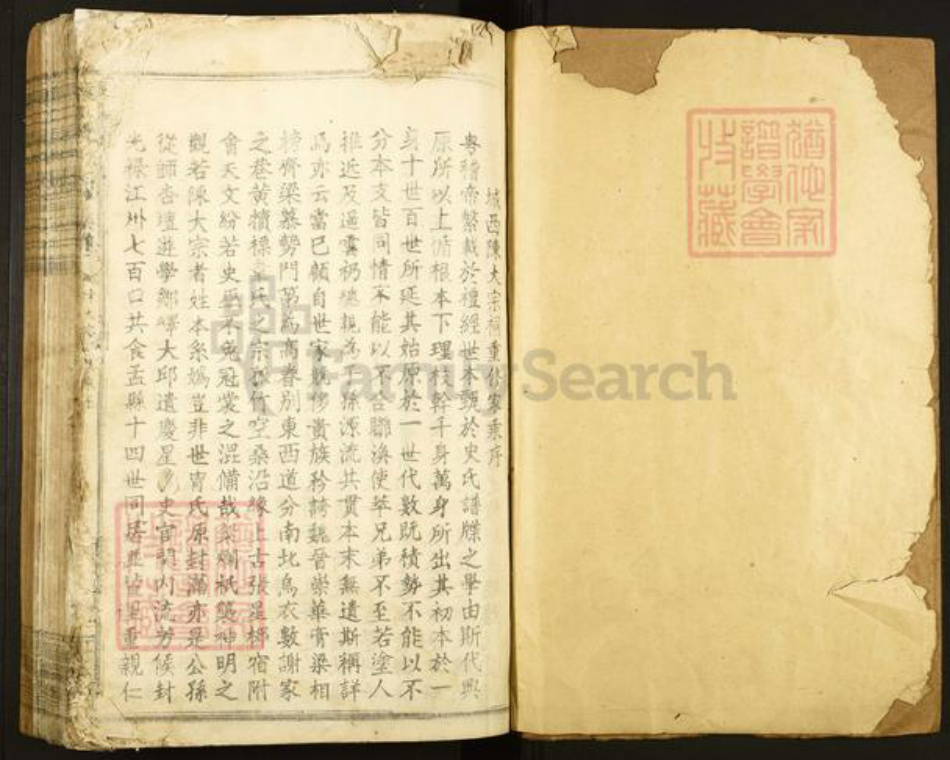 城西陳大宗祠重修家乘序
粵稽帝繫載於禮經世本甄於史氏譜牒之學由斯代興
原所以上循根本下理枝幹千身萬身所出其初本於一
身十世百世所延其始原於一世代數既積勢不能以不
分本支皆同情不能以不合聯渙使萃兄弟不至若塗人
推近及遠雲礽總親為子孫源流共貫本末無遺斯稱詳
為亦云當已顧自世家既移貴族矜誇魏晉崇華膏梁相
榜齊梁慕勢門第為高眷別東西道分南北烏衣數謝家
之巷黃犢標 氏之宗孤竹空桑沿緣上古張星柳宿附
會天文紛若史 不免冠裳之混備哉 爛祇 神明之
觀若陳大宗者姓本系媯豈非世冑氏原封滿亦是公孫
從師杏壇遊學鄒嶧大邱遺慶星 史官閥內流芳候封
光祿江州七百口共食孟縣十四世同居並皆里重親仁
猶他家
譜學會
收藏
FamilySearch